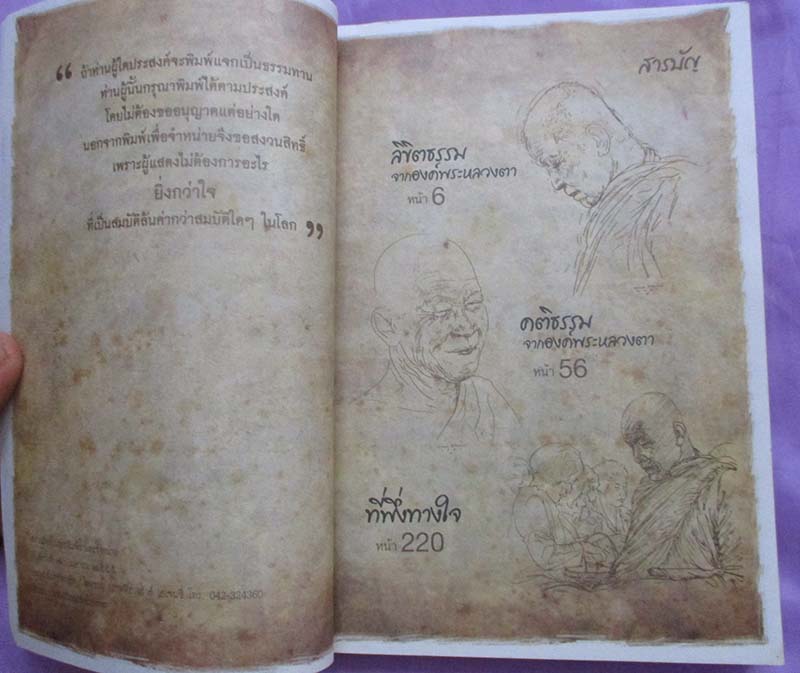 “ ถ้าท่านผู้ใดประสงค์จะพิมพ์แจกเป็นธรรมทาน
ท่านผู้นั้นกรุณาพิมพ์ได้ตามประสงค์
โดยไม่ต้องขออนุญาตแต่อย่างใด
นอกจากพิมพ์เพื่อจำหน่ายจึงขอสงวนสิทธิ์
เพราะผู้แสดงไม่ต้องการอะไร
ยิ่งกว่าใจ
ที่เป็นสมบัติล้นค่ากว่าสมบัติใดๆ ในโลก ”
โทร. 042-324360
สารบัญ
ลิขิตธรรม
จากองค์พระหลวงตา
หน้า 6
คติธรรม
จากองค์พระหลวงตา
หน้า 56
ที่พึ่งทางใจ
หน้า 220